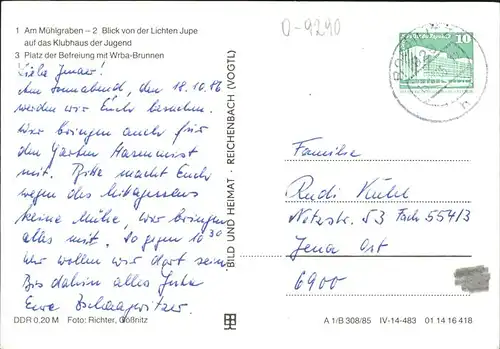 1 Am Mühlgraben – 2 Blick von der Lichten Jupe
auf das Klubhaus der Jugend
3 Platz der Befreiung mit Wrba-Brunnen
Liebe Jenaer!
Am Sonnabend, den 18.10.86
werden wir Euch besuchen.
Wir bringen auch für
den Garten Hasenmist
mit. Bitte macht Euch
wegen des Mittagessens
keine Mühe, wir bringen
alles mit. So gegen 10 30
Uhr wollen wir dort sein
Bis dahin alles Gute
Eure
DDR 0,20 M Foto: Richter, Gößnitz
BILD UND HEIMAT · REICHENBACH (VOGTL)
0-9290
10
Familie
Rudi
53 Fach 554/3
Jena Ost
6900
A 1/B 308/85 IV-14-483 01 14 16 418